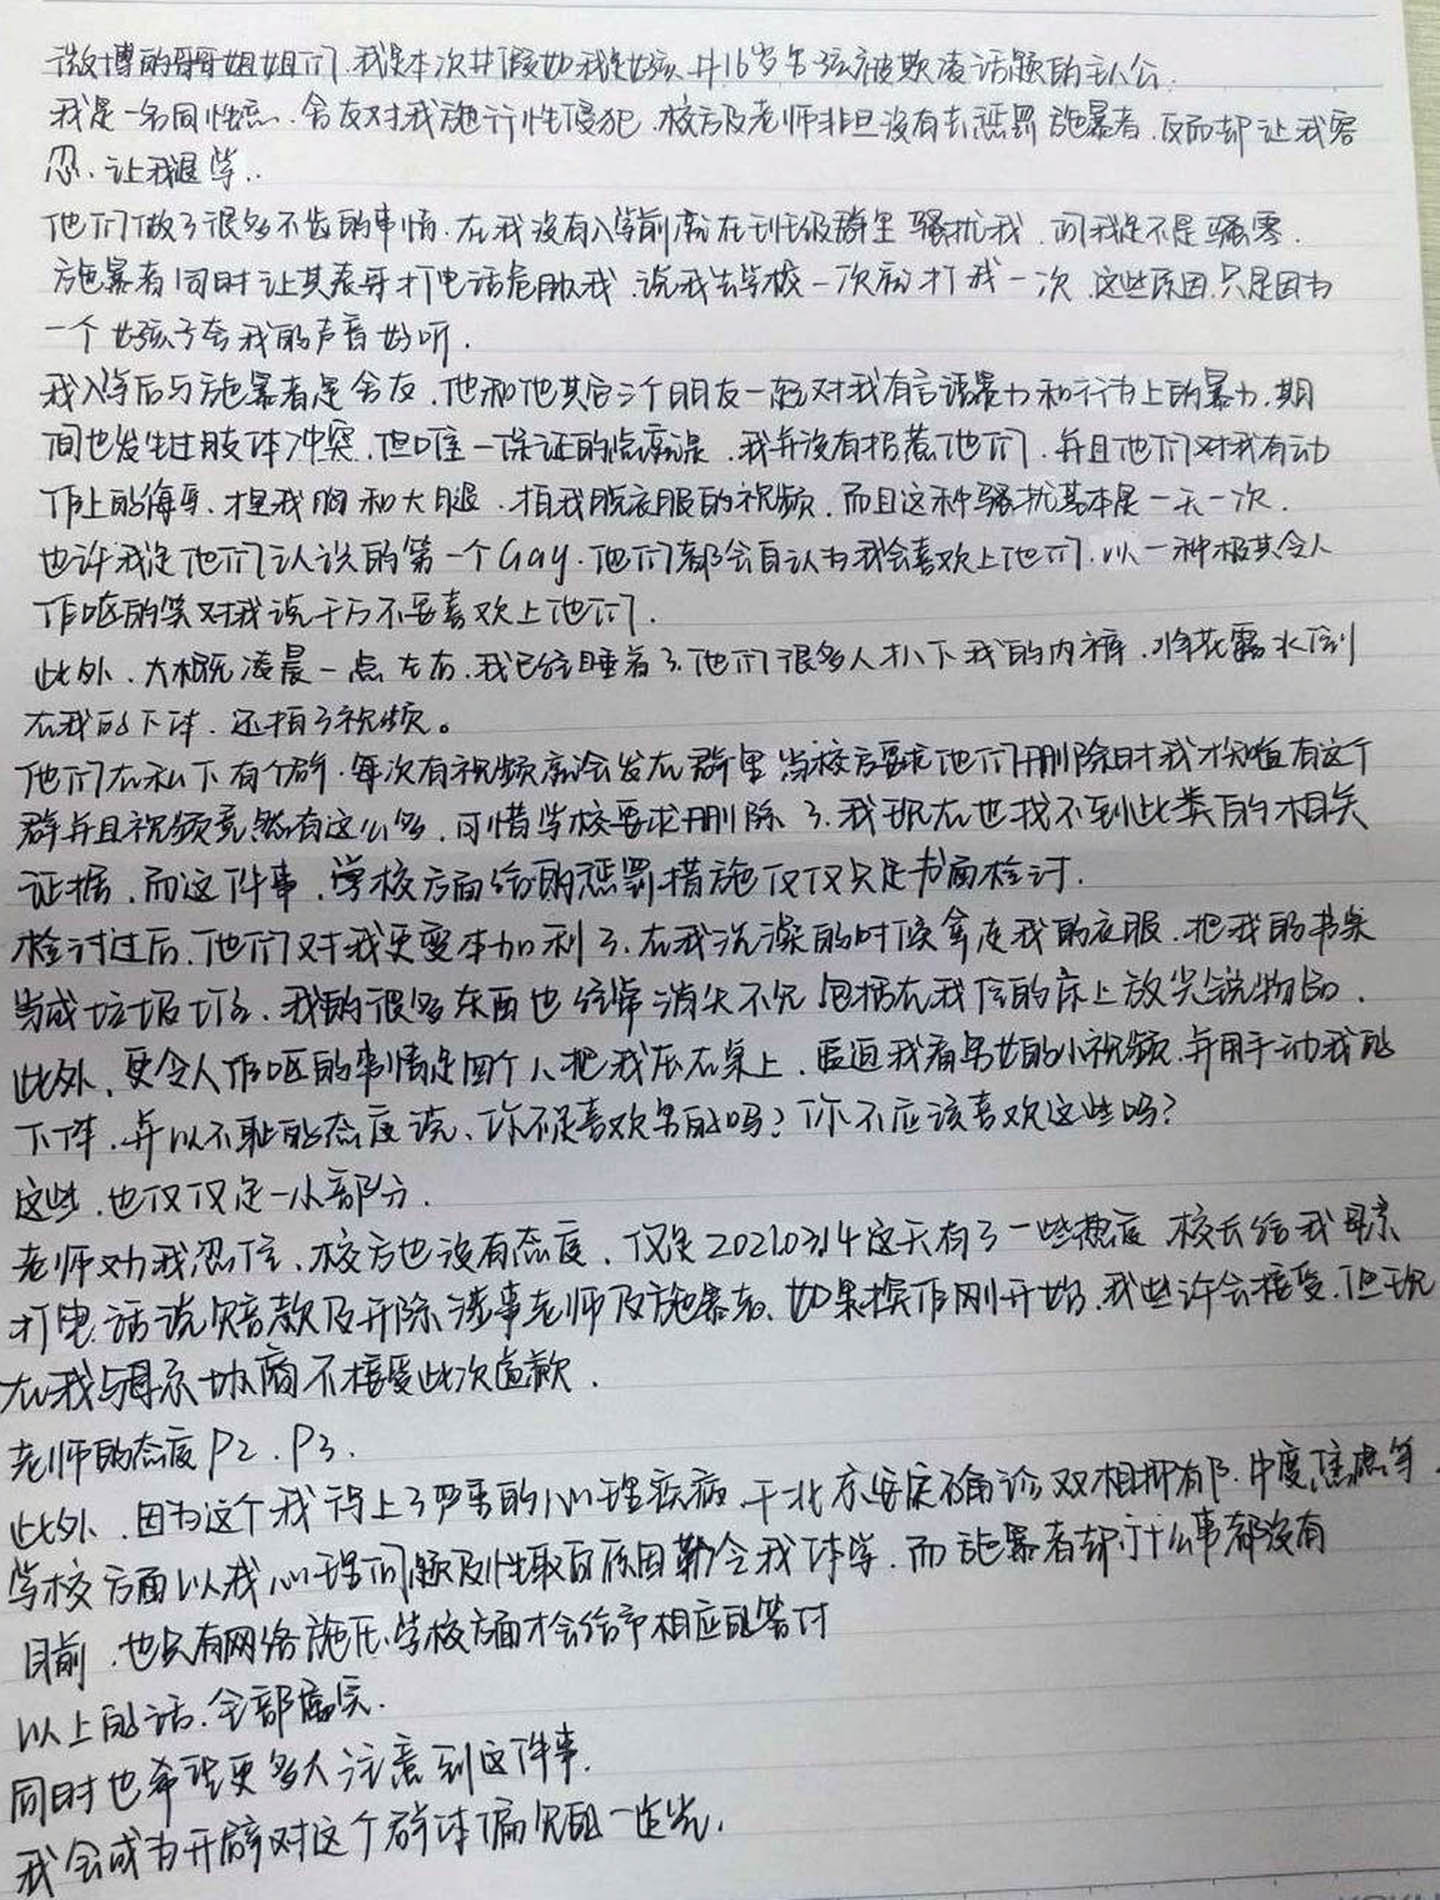 微博的哥哥姐姐们.我是本次#假如我是女孩.#16岁男孩被欺凌话题的主人公.
我是一名同性恋.舍友对我施行性侵犯.校方及老师非但没有去惩罚施暴者.反而却让我容
忍.让我退学..
他们做了很多不齿的事情.在我没有入学前就在班级群里骚扰我.问我是不是骚零.
施暴者同时让其表哥打电话危胁我.说我去学校一次就打我一次.这些原因.只是因为
一个女孩子夸我的声音好听.
我入学后与施暴者是舍友.他和他其它三个朋友一起对我有言语暴力和行为上的暴力.期
间也发生过肢体冲突.但唯一保证的点就是.我并没有招惹他们.并且他们对我有动
作上的侮辱.摸我胸和大腿.拍我脱衣服的视频.而且这种骚扰基本是一天一次.
也许我是他们认识的第一个Gay.他们都会自认为我会喜欢上他们.以一种极其令人
作呕的笑对我说千万不要喜欢上他们.
此外.大概凌晨一点左右.我已经睡着了.他们很多人扒下我的内裤.将花露水倒
在我的下体.还拍了视频。
他们在私下有个群.每次有视频就会发在群里当校方要求他们删除时我才知道有这个
群并且视频竟然有这么多.可惜学校要求删除了.我现在也找不到此类的相关
证据.而这件事.学校方面给的惩罚措施仅仅只是书面检讨.
检讨过后.他们对我更变本加利了.在我洗澡的时候拿走我的衣服.把我的书桌
当成垃圾场.我的很多东西也经常消失不见包括在我住的床上放尖锐物品.
此外.更令人作呕的事情是四个人把我压在桌上.逼迫我看男女的小视频.并用手动我的
下体.并以不耻的态度说、你不是喜欢男的吗?你不应该喜欢这些吗?
这些.也仅仅是一小部分.
老师劝我忍住、校方也没有态度.仅是2021.03.14这天有了一些热度 校长给我母亲
打电话说赔款及开除涉事老师及施暴者.如果操作刚开始.我也许会接受.但现
在我与母亲协商不接受此次道歉.
老师的态度P2.P3.
此外.因为这个我得上了严重的心理疾病.于北京安定确诊双相抑郁.中度焦虑等.
学校方面以我心理问题及性取向原因勒令我休学.而施暴者却什么事都没有
目前.也只有网络施压.学校方面才会给予相应的答付
以上的话.全部属实.
同时也希望更多人注意到这件事.
我会成为开辟对这个群体偏见的一道光.